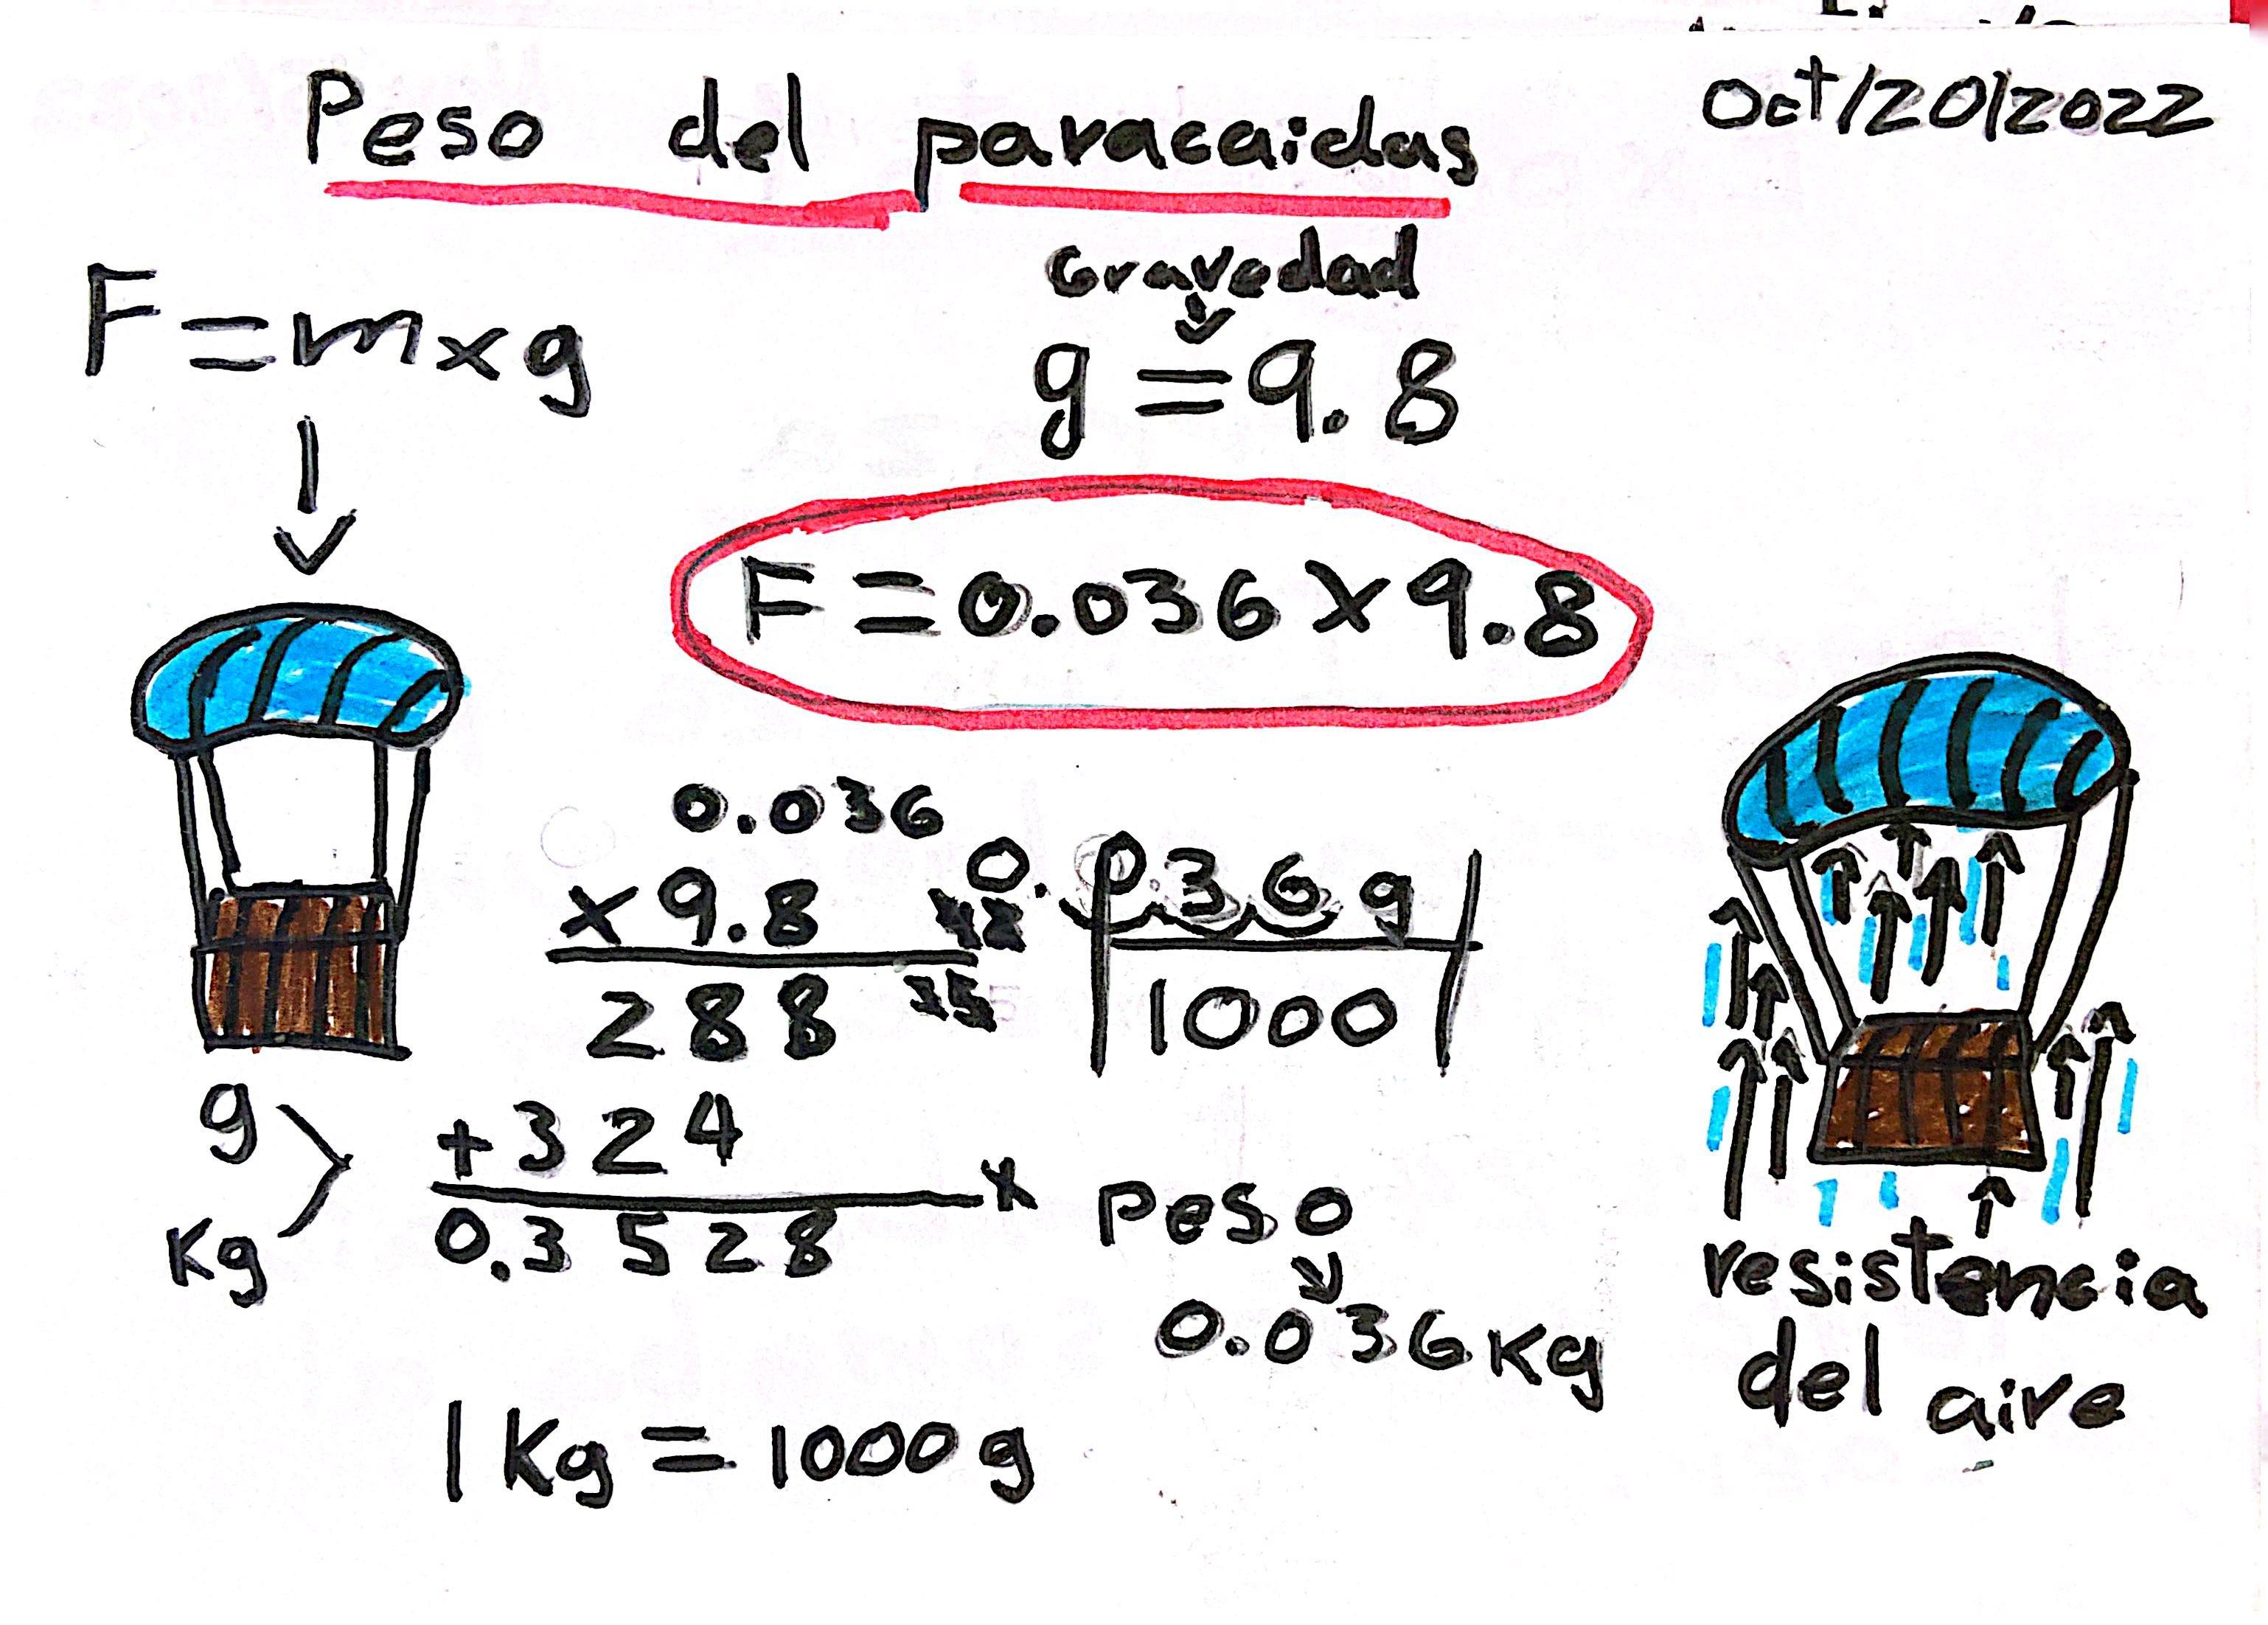 Peso del paracaidas
Oct/20/2022
F=mxg
Gravedad
g=9.8
F=0.036x9.8
0.036
x9.8
288
+324
0.3528
0.036g
1000
g
Kg
Peso
0.036Kg
1Kg=1000g
resistencia
del aire